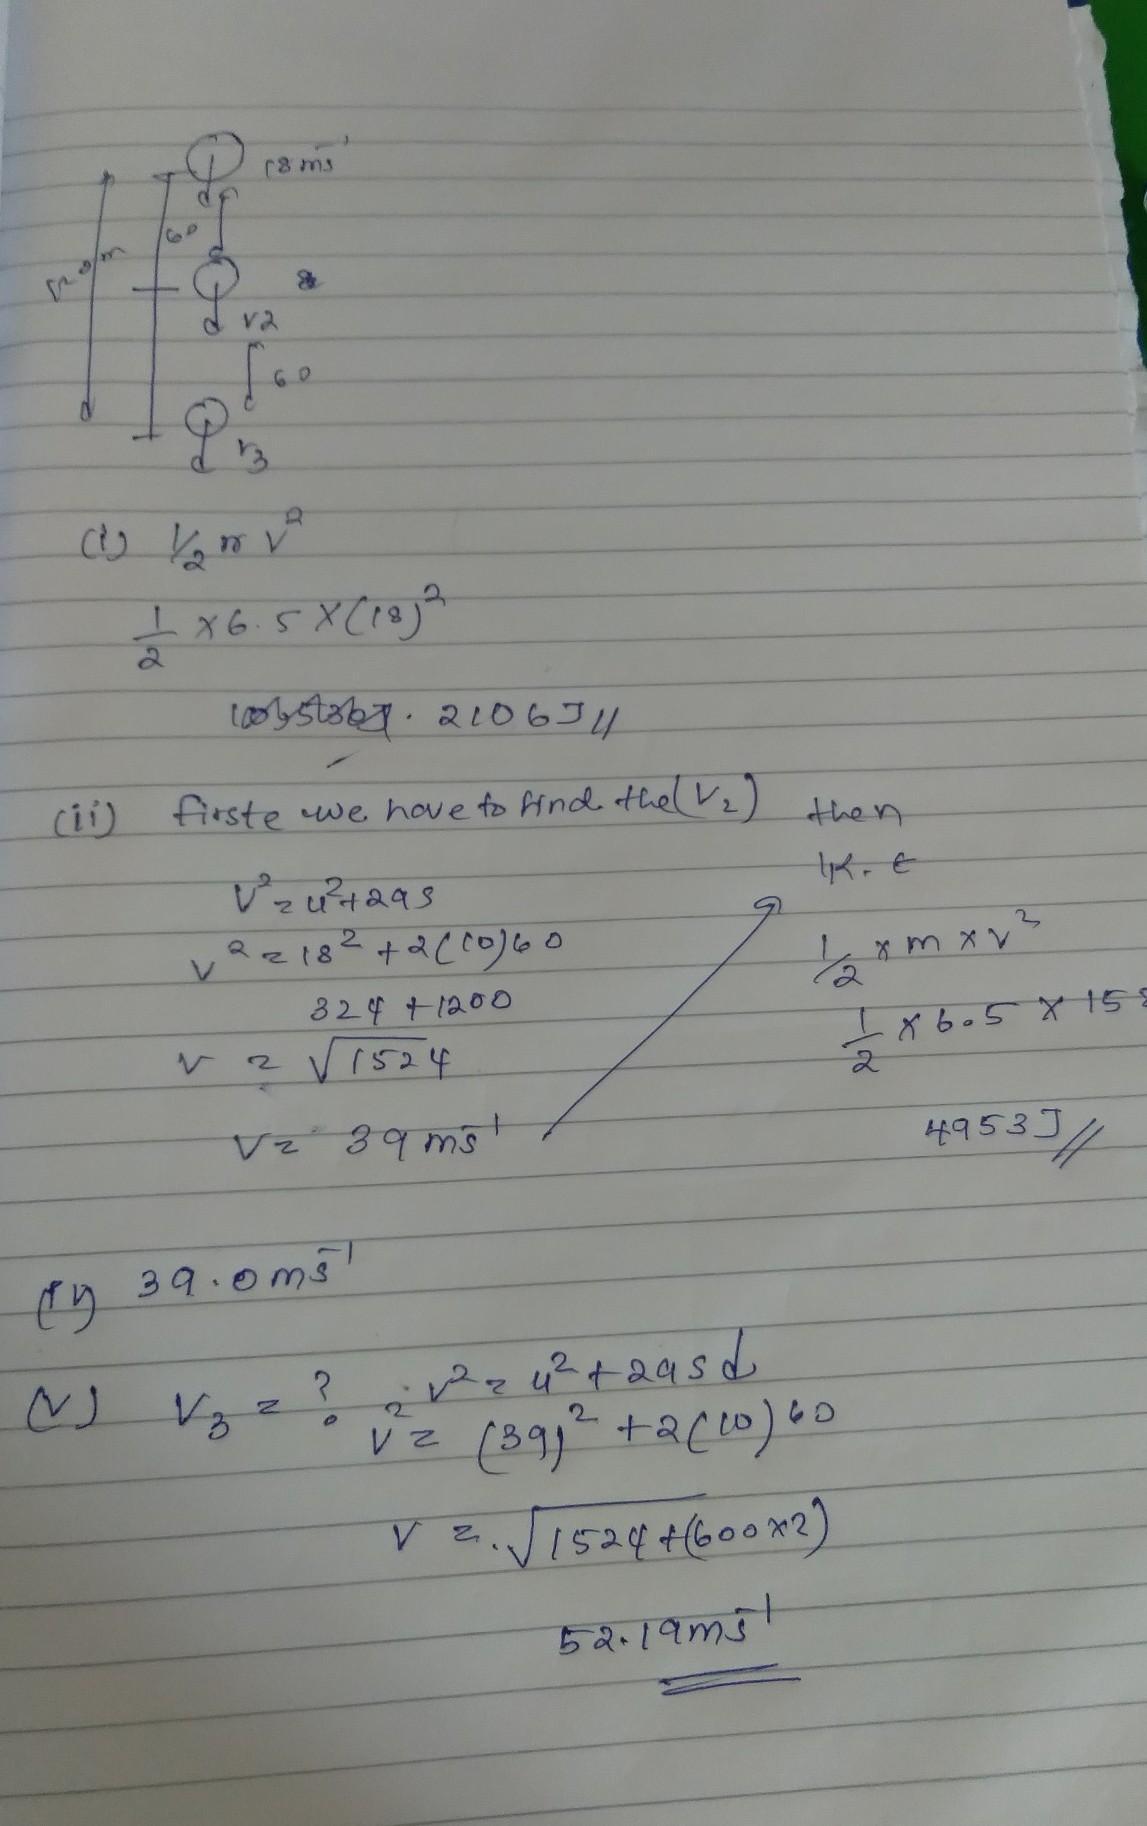 18 ms⁻¹
60
v2
60
v3
(i) 1/2 m v²
1/2 × 6.5 × (18)²
2106 J //
(ii) firste we have to find the (V₂) then
K.E
v² = u² + 2as
v² = 18² + 2(10)60
324 + 1200
v = √1524
v = 39 ms⁻¹
1/2 × m × v²
1/2 × 6.5 × 15
4953 J //
(iv) 39.0 ms⁻¹
(v) V₃ = ? v² = u² + 2as ↓
v² = (39)² + 2(10)60
v = √1524 + (600×2)
52.19 ms⁻¹